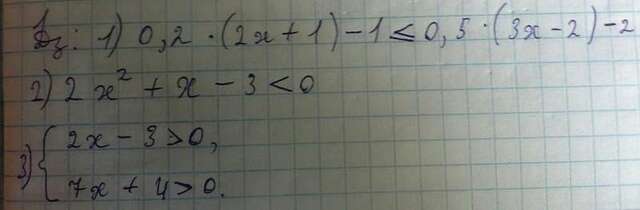 Дз: 1) 0,2 · (2x + 1) - 1 ≤ 0,5 · (3x - 2) - 2
2) 2x² + x - 3 < 0
3) { 2x - 3 > 0,
7x + 4 > 0.